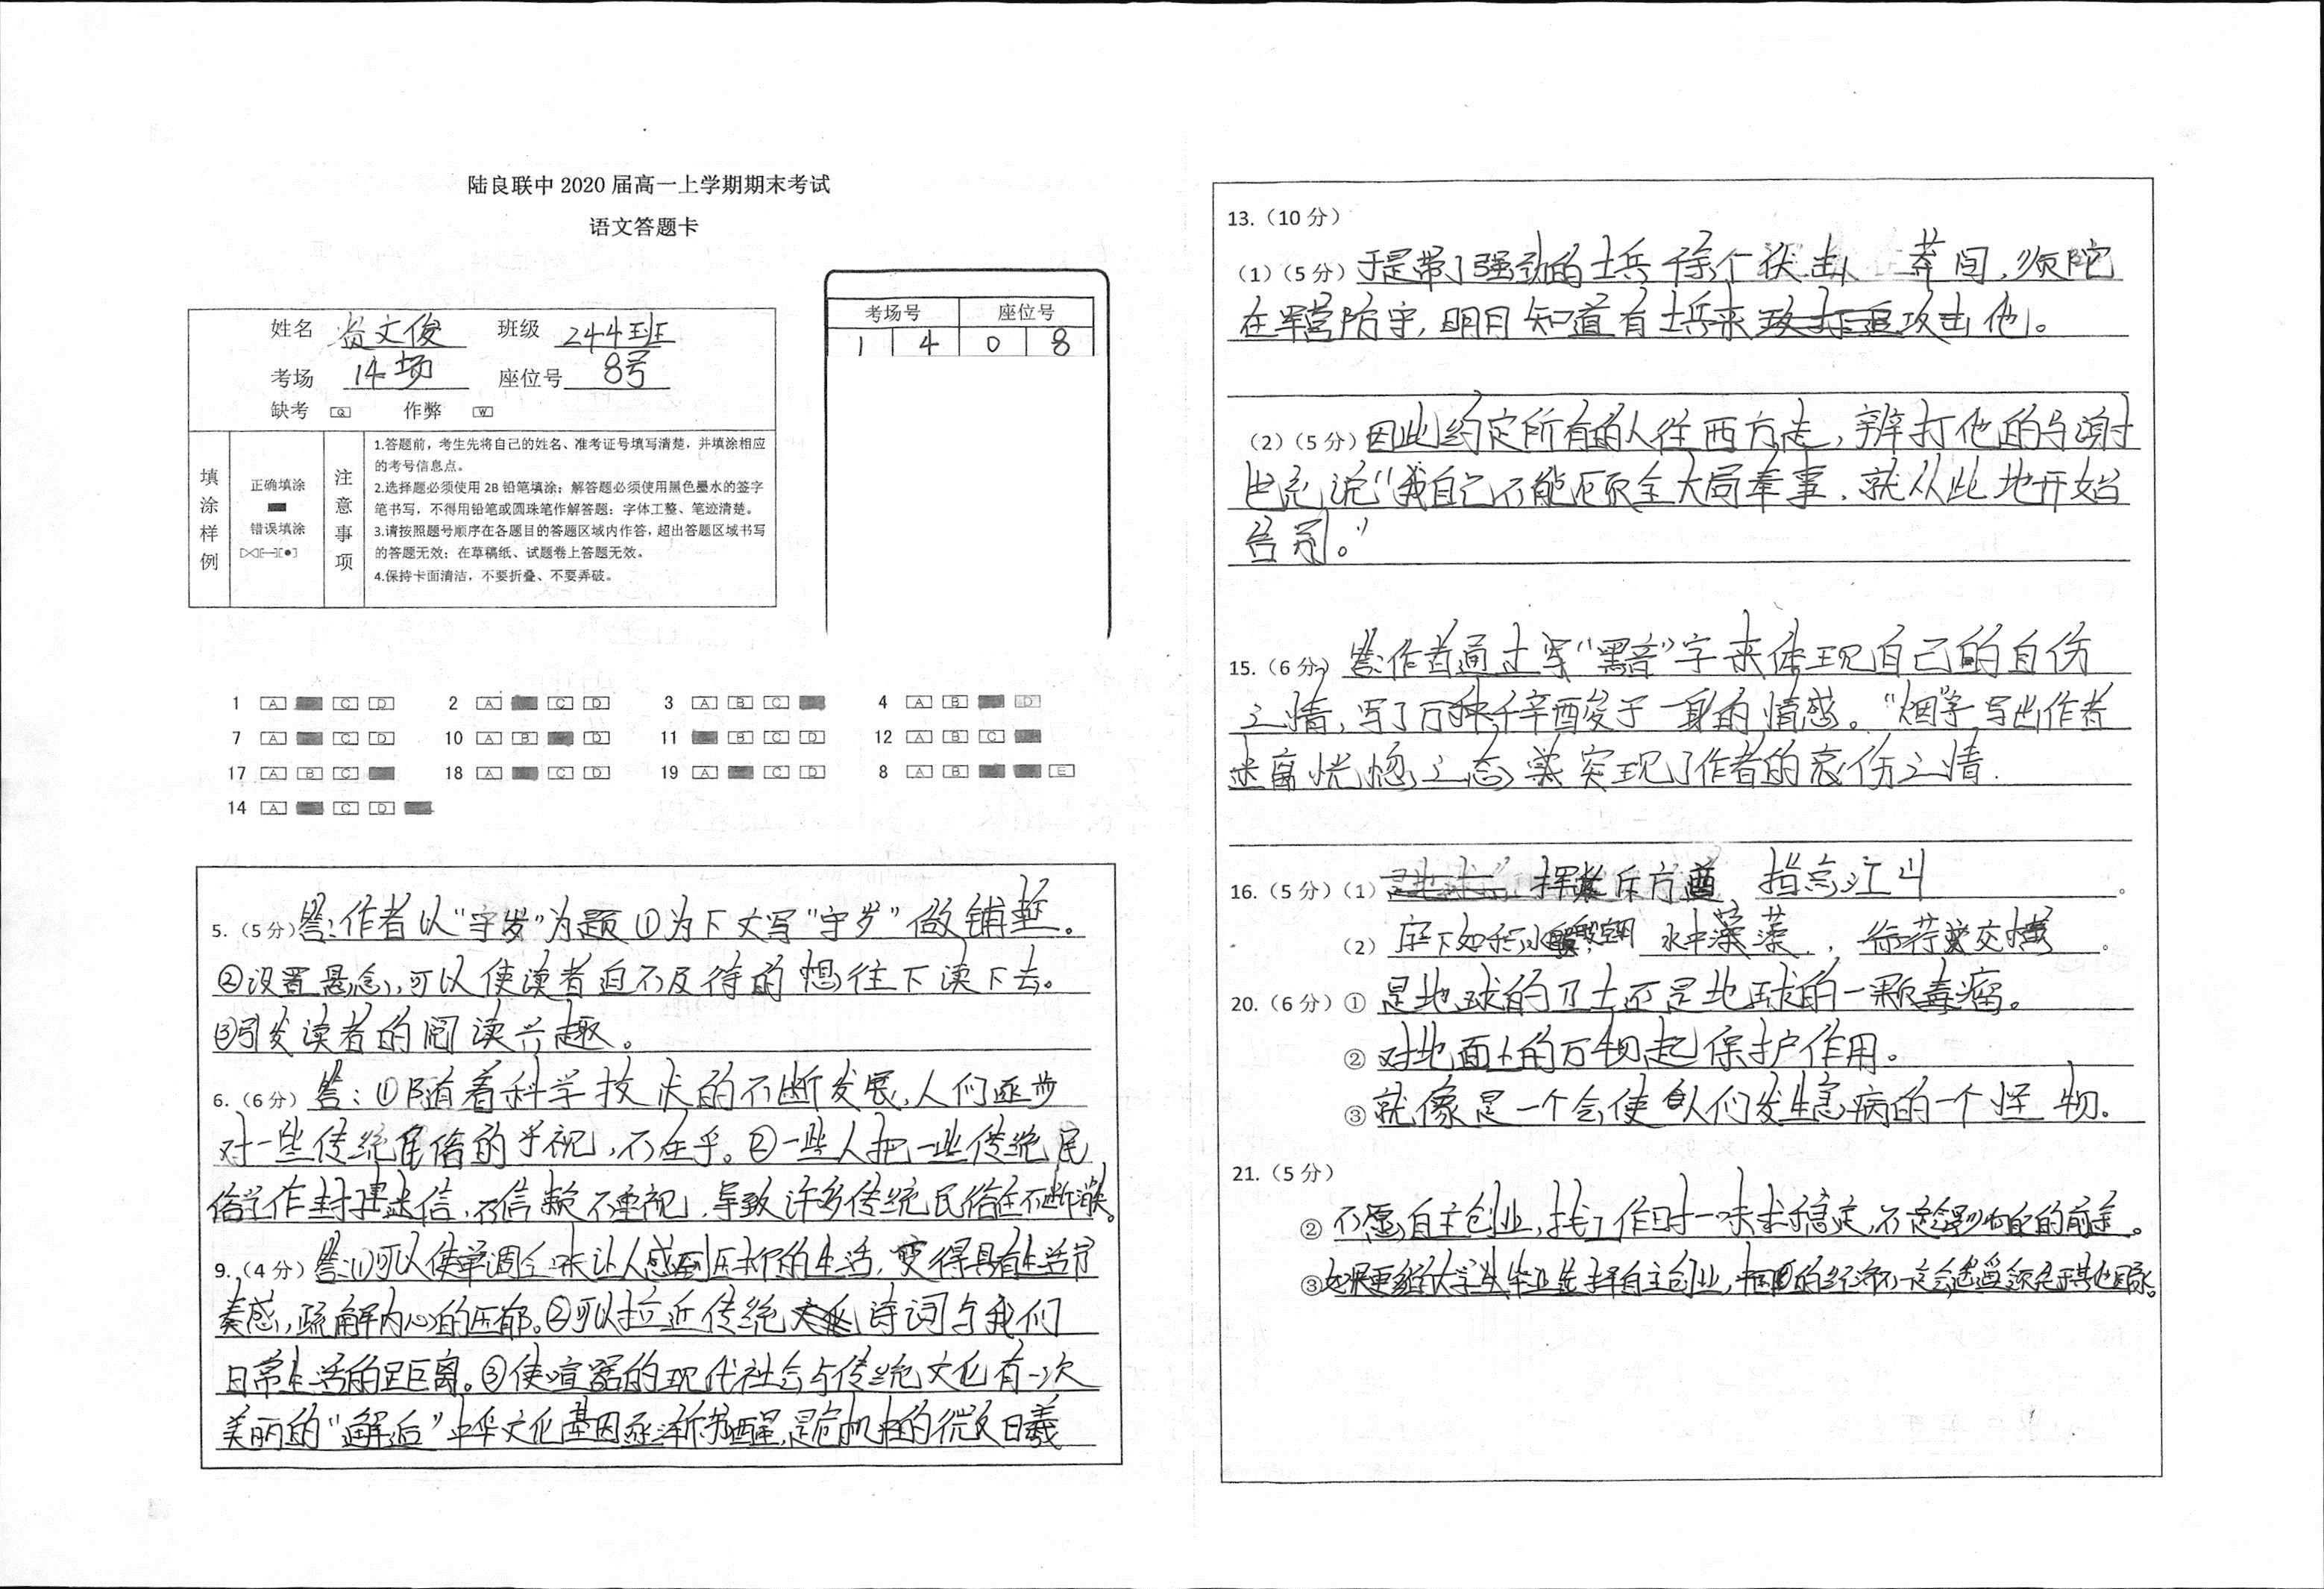 陆良联中 2020 届高一上学期期末考试
语文答题卡
姓名 文俊 班级 244班
考场 14场 座位号 8号
缺考 Q 作弊 W
考场号 座位号
1 4 0 8
填涂样例
正确填涂
错误填涂
注意事项
1.答题前，考生先将自己的姓名、准考证号填写清楚，并填涂相应
的考号信息点。
2.选择题必须使用 2B 铅笔填涂；解答题必须使用黑色墨水的签字
笔书写，不得用铅笔或圆珠笔作解答题；字体工整、笔迹清楚。
3.请按照题号顺序在各题目的答题区域内作答，超出答题区域书写
的答题无效；在草稿纸、试题卷上答题无效。
4.保持卡面清洁，不要折叠、不要弄破。
1 A C D 2 A C D 3 A B C 4 A B D
7 A C D 10 A B D 11 B C D 12 A B C
17 A B C 18 A C D 19 A C D 8 A B E
14 A C D
5.（5分）答：作者以“守岁”为题①为下文写“守岁”做铺垫。
②设置悬念，可以使读者迫不及待的想往下读下去。
③引发读者的阅读兴趣。
6.（6分）答：①随着科学技术的不断发展，人们逐步
对一些传统民俗的乎视，不在乎。②一些人把一些传统民
俗当作封建迷信，不信赖不重视，导致许多传统民俗在不断消失。
9.（4分）答：①可以使单调乏味让人感到压抑的生活，变得具有生活节
奏感，疏解内心的压郁。②可以拉近传统诗词与我们
日常生活的距离。③使喧嚣的现代社会与传统文化有一次
美丽的“邂逅”中华文化基因逐渐苏醒，是危机中的微
13.（10分）
（1）（5分）于是带了强劲的士兵千余个伏击 莽间，须陀
在军营防守，明日知道有士兵来攻击他。
（2）（5分）因此约定所有的人往西方走，辨打他的与谢
说“我自己不能顾全大局奉事，就从此地开始
告别。”
15.（6分）答：作者通过写“黑音”字来体现自己的自伤
之情，写了万种千辛酸发于一身的情感。“烟”字写出作者
迷离恍惚之态，突现了作者的哀伤之情.
16.（5分）（1）挥 斥方遒 指点江山。
（2）庭下如积水空明 水中藻 ， 荇交横。
20.（6分）① 是地球的卫士还是地球的一颗毒瘤。
② 对地面上的万物起保护作用。
③ 就像是一个会使人们发生急病的一个怪物.
21.（5分）
② 不愿自主创业，找工作时一味求稳定，不一定会影响自己的前途。
③ 大学生毕业选择自主创业，